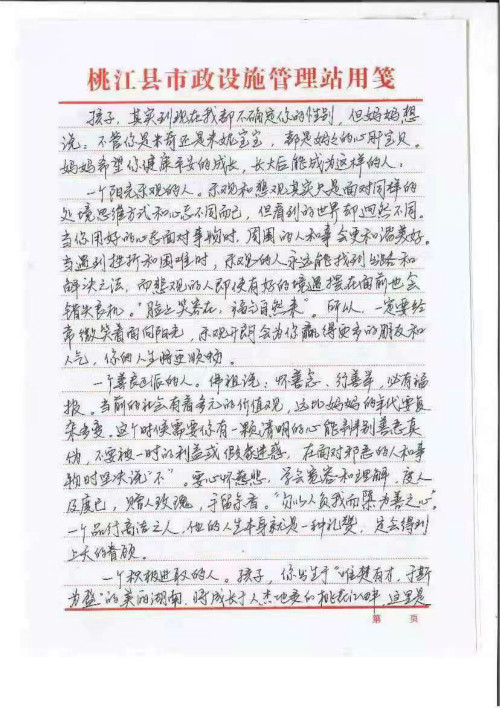 桃江县市政设施管理站用笺
孩子，其实到现在我都不确定你的性别，但妈妈想
说：不管你是米奇还是米妮宝宝，都是妈妈的心肝宝贝。
妈妈希望你健康平安的成长，长大后能成为这样的人：
一个阳光乐观的人。乐观和悲观其实只是面对同样的
处境思维方式和心态不同而已，但看到的世界却迥然不同。
当你用好的心态面对事物时，周围的人和事会更和谐美好。
当遇到挫折和困难时，乐观的人永远能找到出路和
解决之法，而悲观的人即使有好的境遇摆在面前也会
错失良机。“脸上笑容在，福气自然来”。所以，一定要经
常微笑着面向阳光，乐观开朗会为你赢得更多的朋友和
人气，你的人生将更顺畅。
一个善良正派的人。佛祖说：怀善念、行善举，必有福
报。当前的社会有着多元的价值观，远比妈妈的年代要复
杂多变。这个时候需要你有一颗清明的心能判别善恶真
伪，不要被一时的利益或假象迷惑，在面对邪恶的人和事
物时坚决说“不”。要心怀慈悲，学会宽容和理解，度人
及度己，赠人玫瑰，手留余香。“勿以人负我而隳为善之心”。
一个品行高洁之人，他的人生本身就是一种礼赞，定会得到
上天的眷顾。
一个积极进取的人。孩子，你出生于“惟楚有才，于斯
为盛”的美丽湖南，将成长于人杰地灵的桃花江畔，这里是
第 页